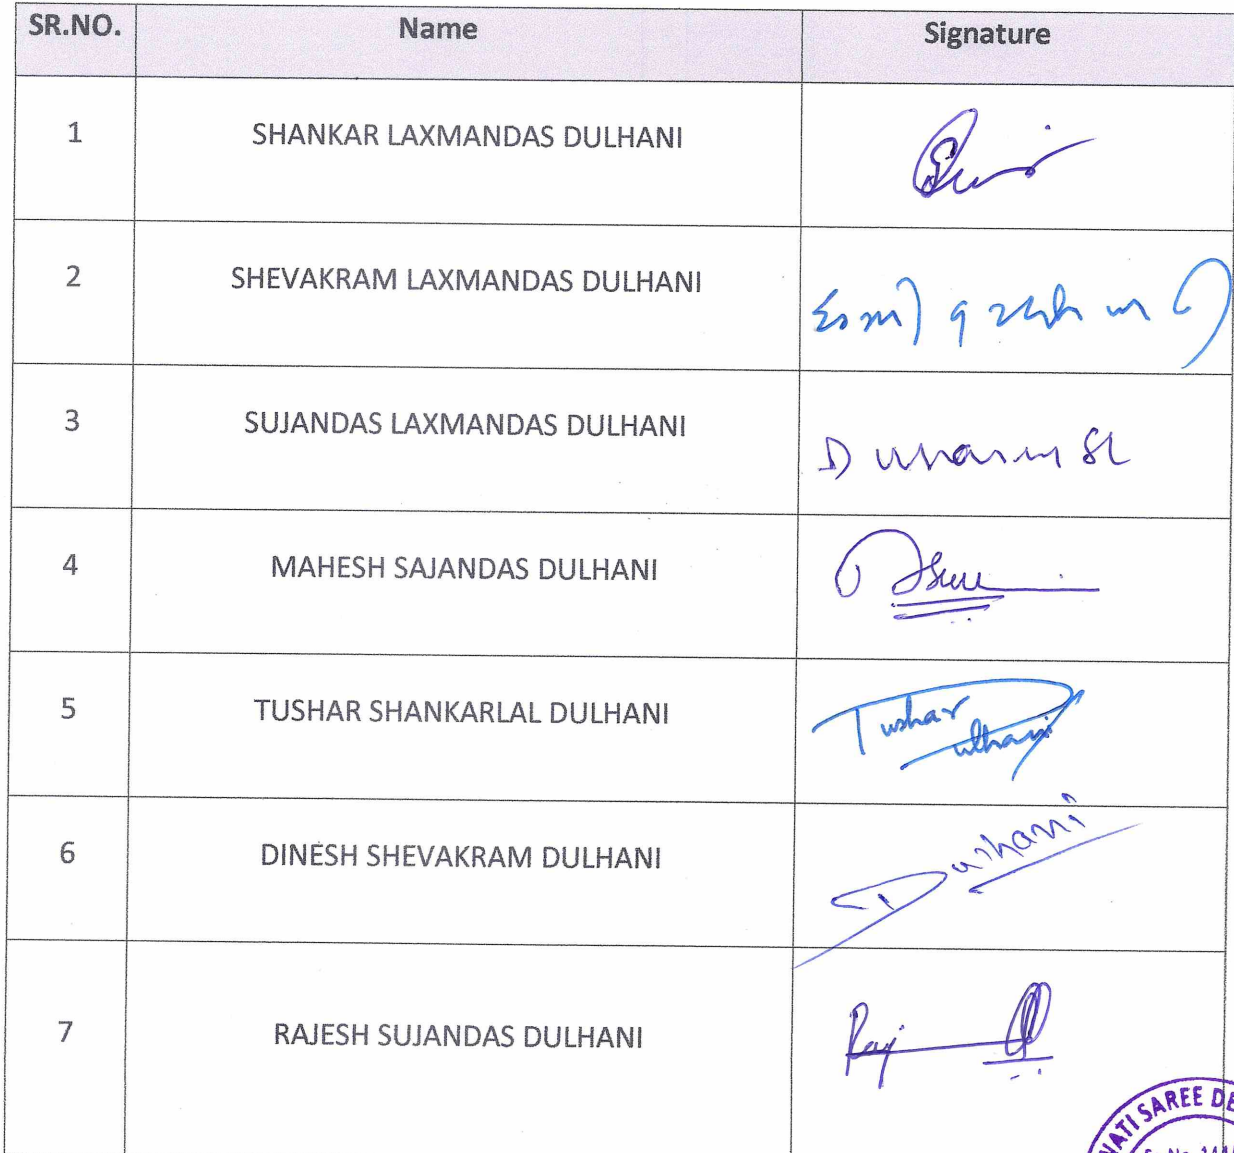 SR.NO. Name Signature
1 SHANKAR LAXMANDAS DULHANI
2 SHEVAKRAM LAXMANDAS DULHANI
3 SUJANDAS LAXMANDAS DULHANI
4 MAHESH SAJANDAS DULHANI
5 TUSHAR SHANKARLAL DULHANI Tushar
Dulhani
6 DINESH SHEVAKRAM DULHANI Dulhani
7 RAJESH SUJANDAS DULHANI Raj
SAREE